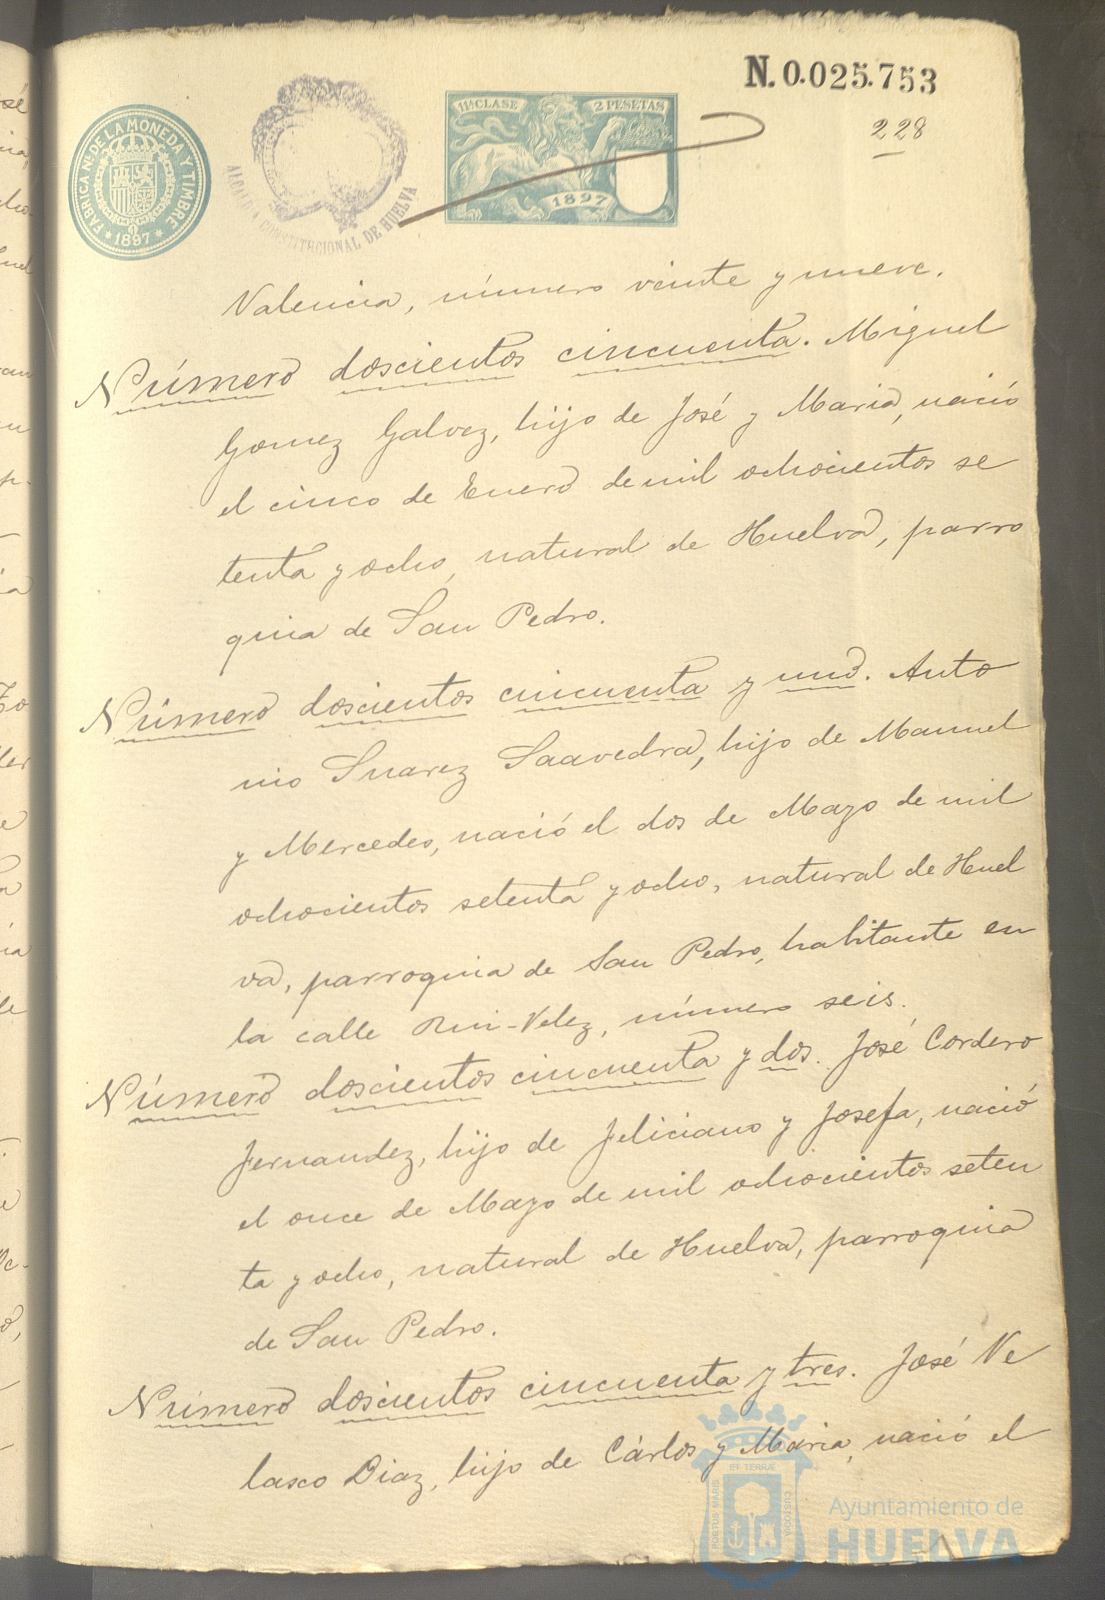 N. 0.025.753
228
11ª CLASE 2 PESETAS
1897
FABRICA NL. DE LA MONEDA Y TIMBRE
1897
ALCALDIA CONSTITUCIONAL DE HUELVA
Valencia, número veinte y nueve.
Número doscientos cincuenta. Miguel
Gomez Galvez, hijo de José y Maria, nació
el cinco de Enero de mil ochocientos se
tenta y ocho, natural de Huelva, parro
quia de San Pedro.
Número doscientos cincuenta y uno. Anto
nio Suarez Saavedra, hijo de Manuel
y Mercedes, nació el dos de Mayo de mil
ochocientos setenta y ocho, natural de Huel
va, parroquia de San Pedro, habitante en
la calle Rui-Velez, número seis.
Número doscientos cincuenta y dos. José Cordero
Fernandez, hijo de Feliciano y Josefa, nació
el once de Mayo de mil ochocientos seten
ta y ocho, natural de Huelva, parroquia
de San Pedro.
Número doscientos cincuenta y tres. José Ve
lasco Diaz, hijo de Cárlos y Maria, nació el
PORTUS MARIS ET TERRÆ CUSTODIA
Ayuntamiento de
HUELVA